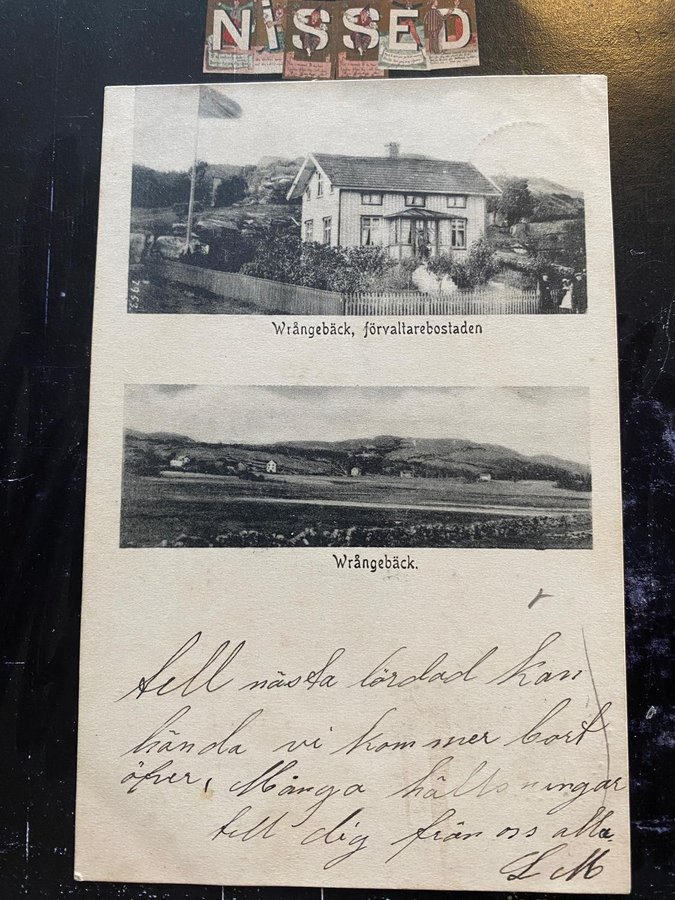 NISSED
7953
Wrångebäck, förvaltarebostaden
Wrångebäck.
till nästa lördad kan
hända vi kommer bort
öfver, Många hällsningar
till dig från oss alla.
L M